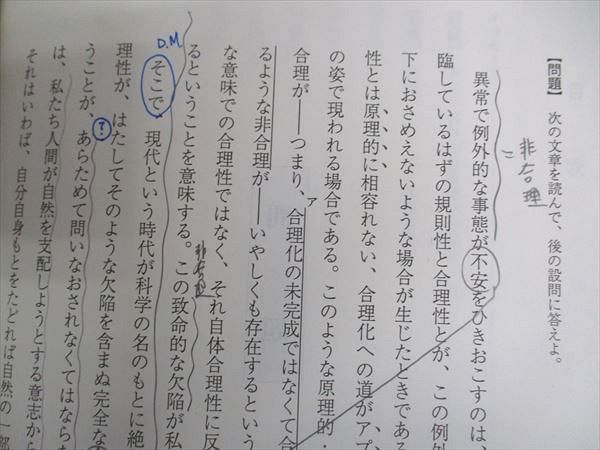 【問題】 次の文章を読んで、後の設問に答えよ。
非合理
異常で例外的な事態が不安をひきおこすのは、
臨しているはずの規則性と合理性とが、この例外
下におさめえないような場合が生じたときである
性とは原理的に相容れない、合理化への道がアプ
の姿で現われる場合である。このような原理的・
合理が――つまり、合理化の未完成ではなくて合
ア
るような非合理が――いやしくも存在するという
な意味での合理性ではなく、それ自体合理性に反
るということを意味する。この致命的な欠陥が私
非合理
D.M
そこで、現代という時代が科学の名のもとに絶
理性が、はたしてそのような欠陥を含まぬ完全な
?
うことが、あらためて問いなおされなくてはならな
は、私たち人間が自然を支配しようとする意志から
それはいわば、自分自身もとをただせば自然の一部